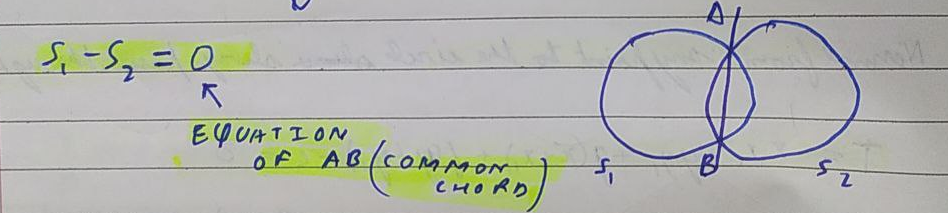 S₁ - S₂ = 0
EQUATION
OF AB (COMMON
CHORD)
A
B
S₁
S₂